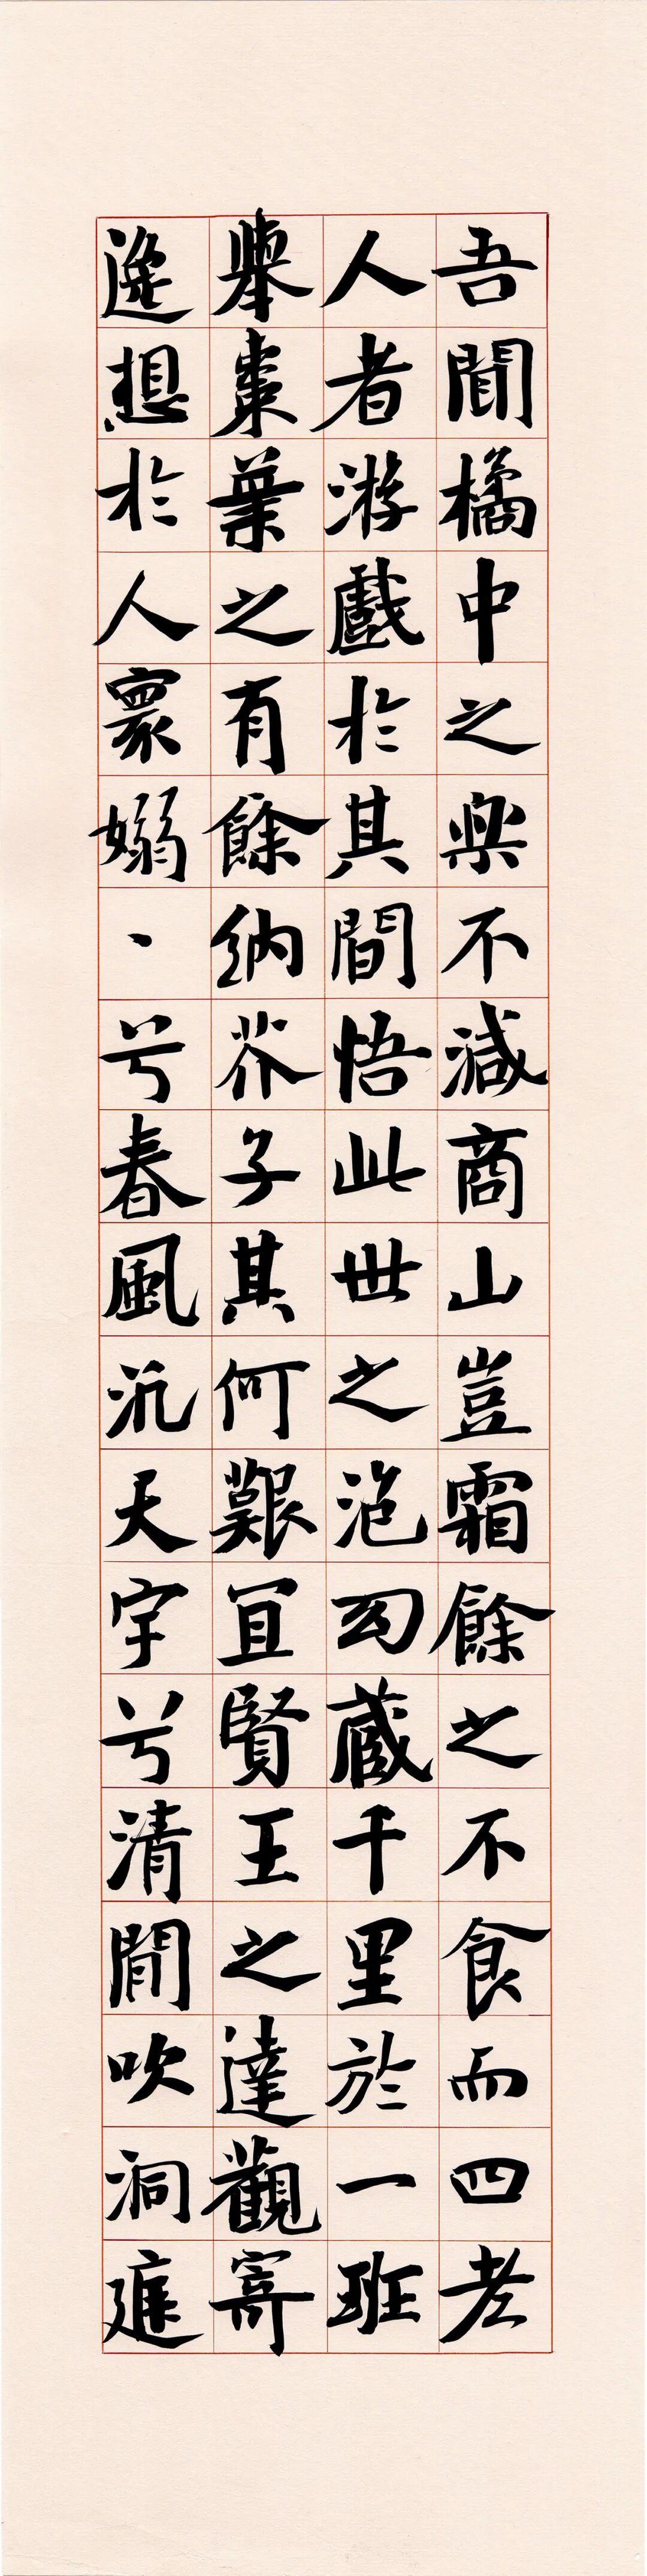 吾聞橘中之樂不減商山豈霜餘之不食而四老
人者游戲於其間悟此世之泡幻藏千里於一班
舉棗葉之有餘納芥子其何艱宜賢王之達觀寄
逸想於人寰嫋丶兮春風泛天宇兮清閒吹洞庭